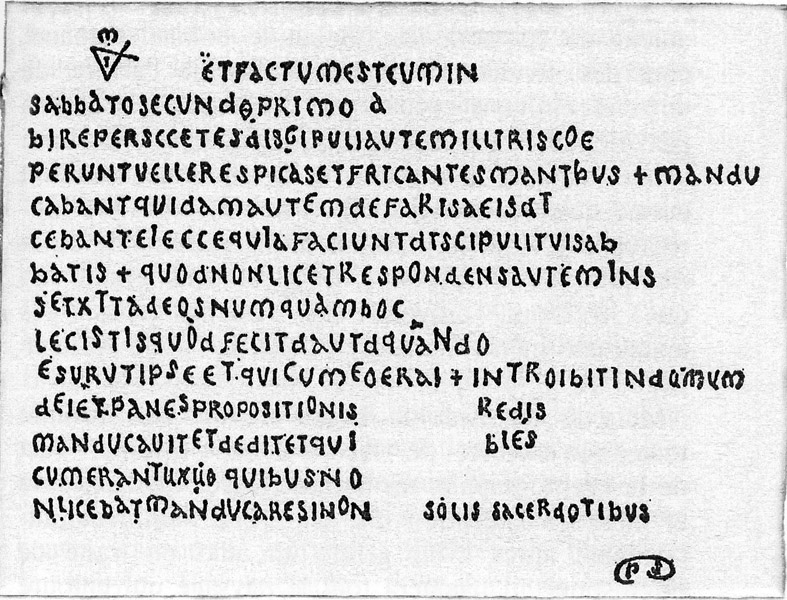 ETFACTUMESTEUMIN
SABBATOSECUNDOPRIMO A
BIREPERSCCETESDISGIPULIAUTEMILLTRISCOE
PERUNTVELLERESPICASETFRTCANTESMANTBUS + MANDU
CABANTQUIDAMAUTEMDEFARISAEISDT
CEBANTEIECCEQUIAFACIUNTDTSCIPULITUISAB
BATIS + QUODNONLICETRESPONDENSAUTEMINS
SETXTTADEOSNUMQUAMBOC
LECISTISQUODFECITDAUTDQUANDO
ESURUTIPSEETQUICUMEOERAI + INTROIBITINDOMUM
DEIETPANESPROPOSITIONIS REDIS
MANDUCAUITETDEDITETQUI BLES
CUMERANTUXUO QUIBUSNO
NLICEBATMANDUCARESINON SOLIS SACERDOTIBUS
PS